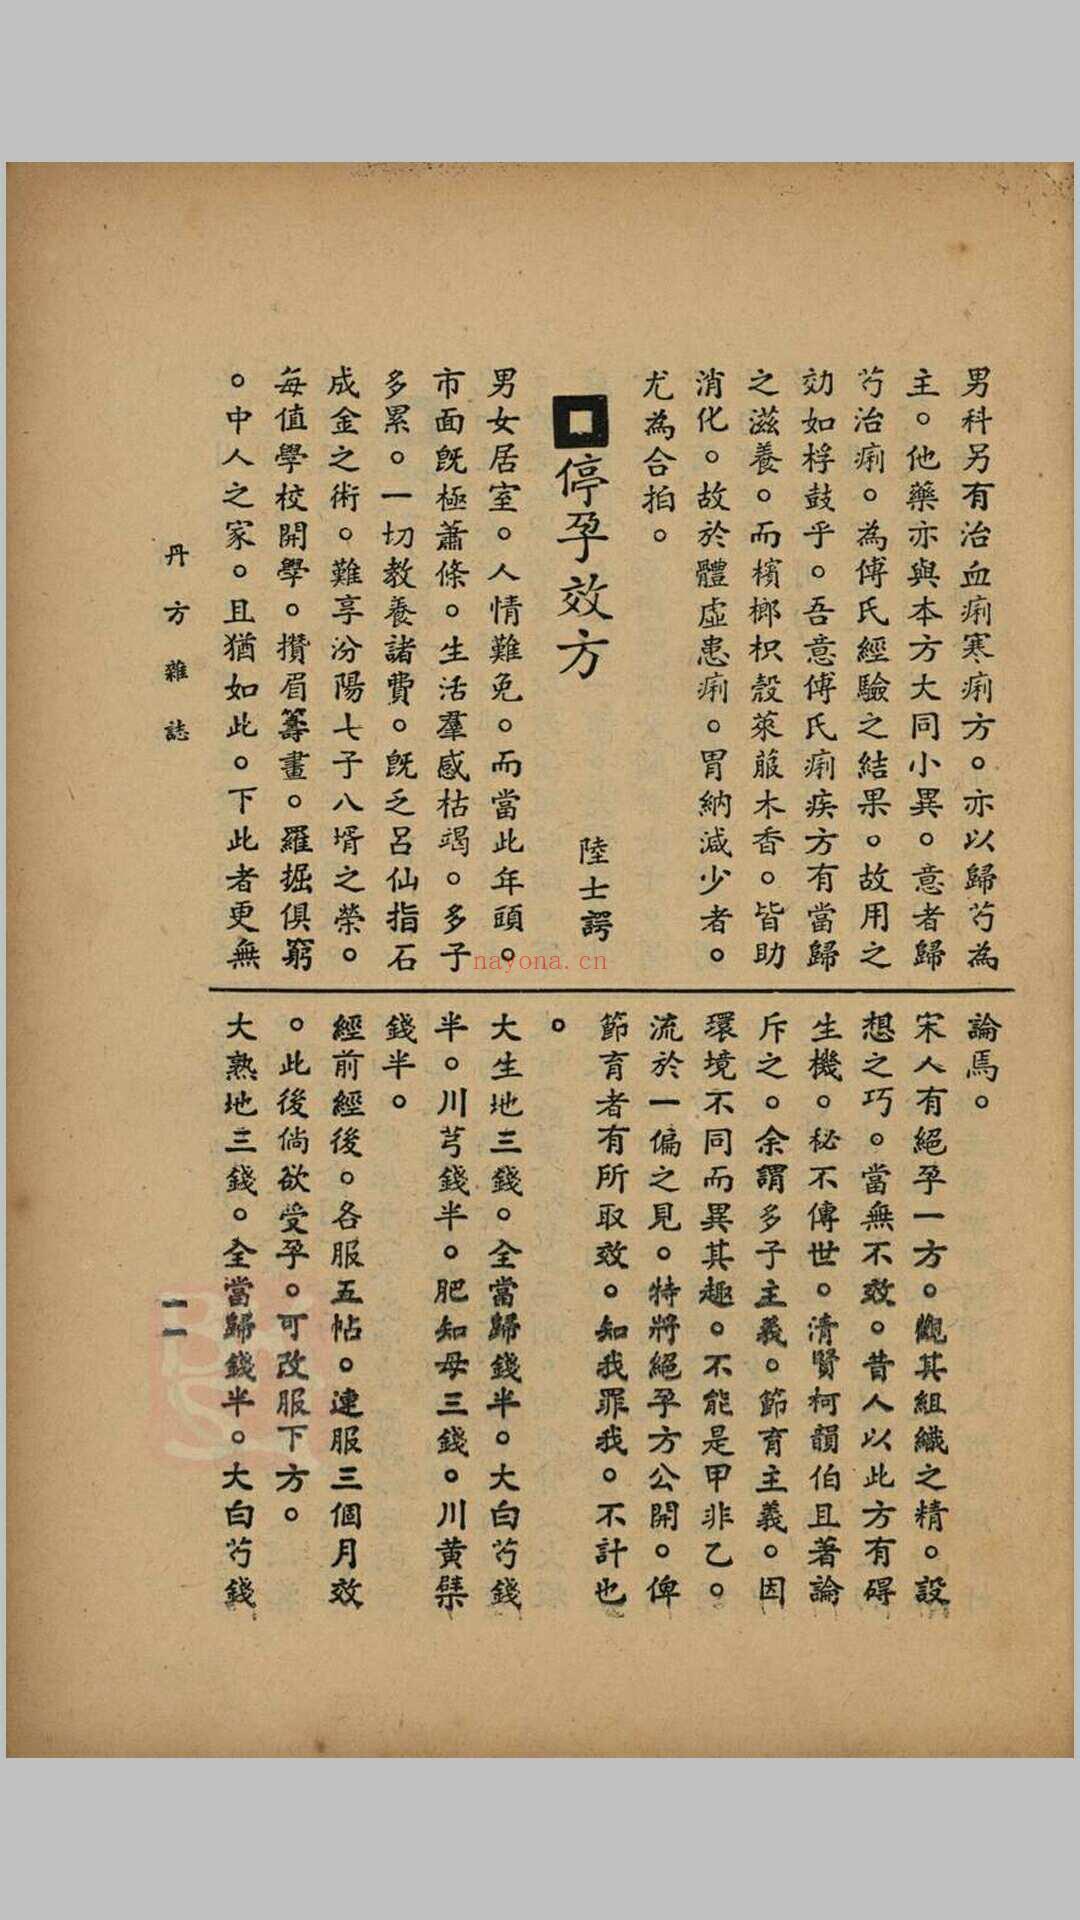 男科另有治血痢寒痢方。亦以歸芍為
主。他藥亦與本方大同小異。意者歸
芍治痢。為傅氏經驗之結果。故用之
効如桴鼓乎。吾意傅氏痢疾方有當歸
之滋養。而檳榔枳殼萊菔木香。皆助
消化。故於體虛患痢。胃納減少者。
尤為合拍。
停孕效方
陸士諤
男女居室。人情難免。而當此年頭。
市面旣極蕭條。生活羣感枯竭。多子
多累。一切教養諸費。旣乏呂仙指石
成金之術。難享汾陽七子八壻之榮。
每值學校開學。攢眉籌畫。羅掘俱窮
。中人之家。且猶如此。下此者更無
論焉。
宋人有絕孕一方。觀其組織之精。設
想之巧。當無不效。昔人以此方有碍
生機。秘不傳世。清賢柯韻伯且著論
斥之。余謂多子主義。節育主義。因
環境不同而異其趣。不能是甲非乙。
流於一偏之見。特將絕孕方公開。俾
節育者有所取效。知我罪我。不計也
。
大生地三錢。全當歸錢半。大白芍錢
半。川芎錢半。肥知母三錢。川黄檗
錢半。
經前經後。各服五帖。連服三個月效
。此後倘欲受孕。可改服下方。
大熟地三錢。全當歸錢半。大白芍錢
丹方雜誌
一一
nayona.cn